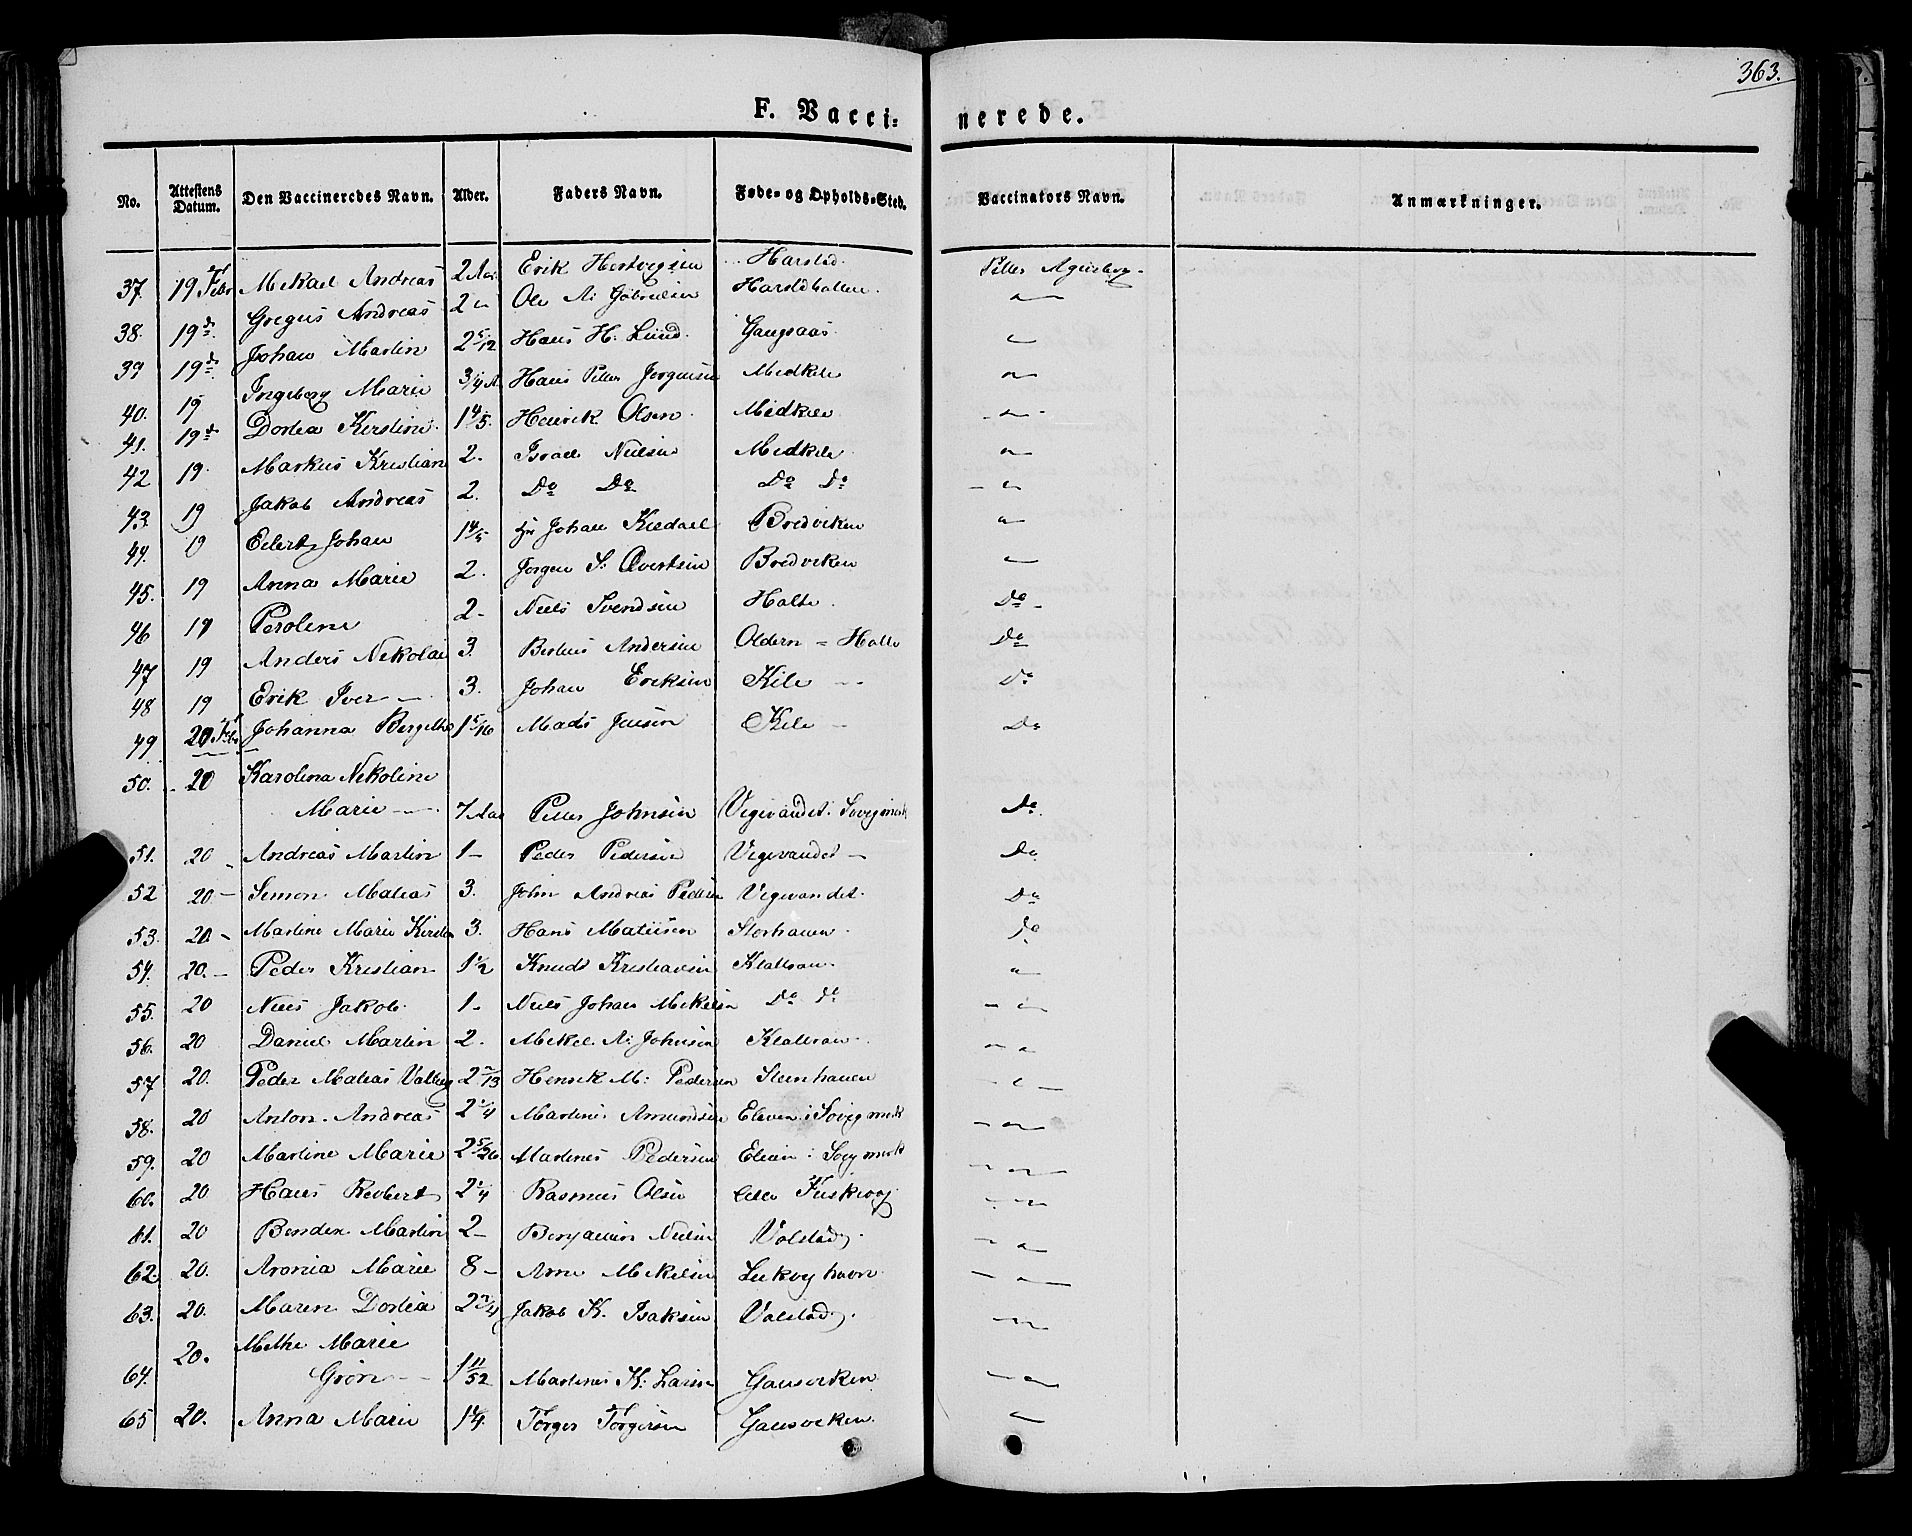 363.
F. Vacci: nerede.
No. Attestens Datum. Den Vaccineredes Navn. Alder. Faders Navn. Føde- og Opholds-Sted. Vaccinators Navn. Anmærkninger.
37 19 Febr Mekael Andreas 2 Aar Erik Hertvegsen Harstad. Petter
38. 19 do Gregus Andreas 2 " Ole A: Gabrielsen "
39 19 do Johan Martin 2 5/12 Hans H. Lund. Gangsaas "
40. 19 Ingeborg Marie 3/4 A. Hans Petter Jørgensen Medkile "
41. 19 do Dortea Kirstine 1 4/5. Henrik Olsen Medkile "
42 19. Markus Kristian 2. Israel Nielsen Medkile "
43. 19 Jakob Andreas 2. Do Do Do Do "
44. 19 Eilert Johan 1 4/5 Johan Bredviken "
45. 19 Anna Marie 2. Jørgen S. Evertsen Bredviken "
46 19 Peroline 2 - Niels Svendsen Halte. Do -
47 19 Anders Nekolai 3. Andersen = Halte Do
48 19 Erik Iver — 3. Johan Eriksen Kile Do
49 20 Febr Johanna 1 5/16 Mads Jensen Kile - Do
50. 20 Karolina Nekoline
Marie — 7 Aar Petter Johnsen Vegevandet. Do.
51. 20 Andreas Martin 1 - Peder Pedersen Vegevandet - Do
52 20 - Simon Mateas 3. John Andreas Vegevandet. Do
53. 20 - Martine Marie 3. Hans Matisen Do
54. 20. - Peder Kristian 1 1/2 Knudt Kristiansen "
55. 20 Niels Jakob. 1 - Niels Johan Mekelsen Do Do "
56. 20 Daniel Martin 2. Mekel A: Johnsen "
57 20. Peder Mateas 2 2/13 Henrik M: Pedersen Steenhauen "
58. 20 Anton Andreas 2 1/4 Martines Amundsen "
59. 20 Martine Marie 2 5/26 Martines Pedersen "
60. 20 Hans 2 1/4 Rasmus Olsen "
61. 20 Martin 2 - Benjamin Nielsen "
62. 20. Aronia Marie 8 - Arne Mekelsen "
63. 20. Maren Dortea 2 3/4 Jakob K. Isaksen "
64. 20. Methe Marie
Grøn — 1 11/52 Martines K. Larsen Gansviken "
65 20. Anna Marie 1 1/4. Torger Torgersen Gansviken. "